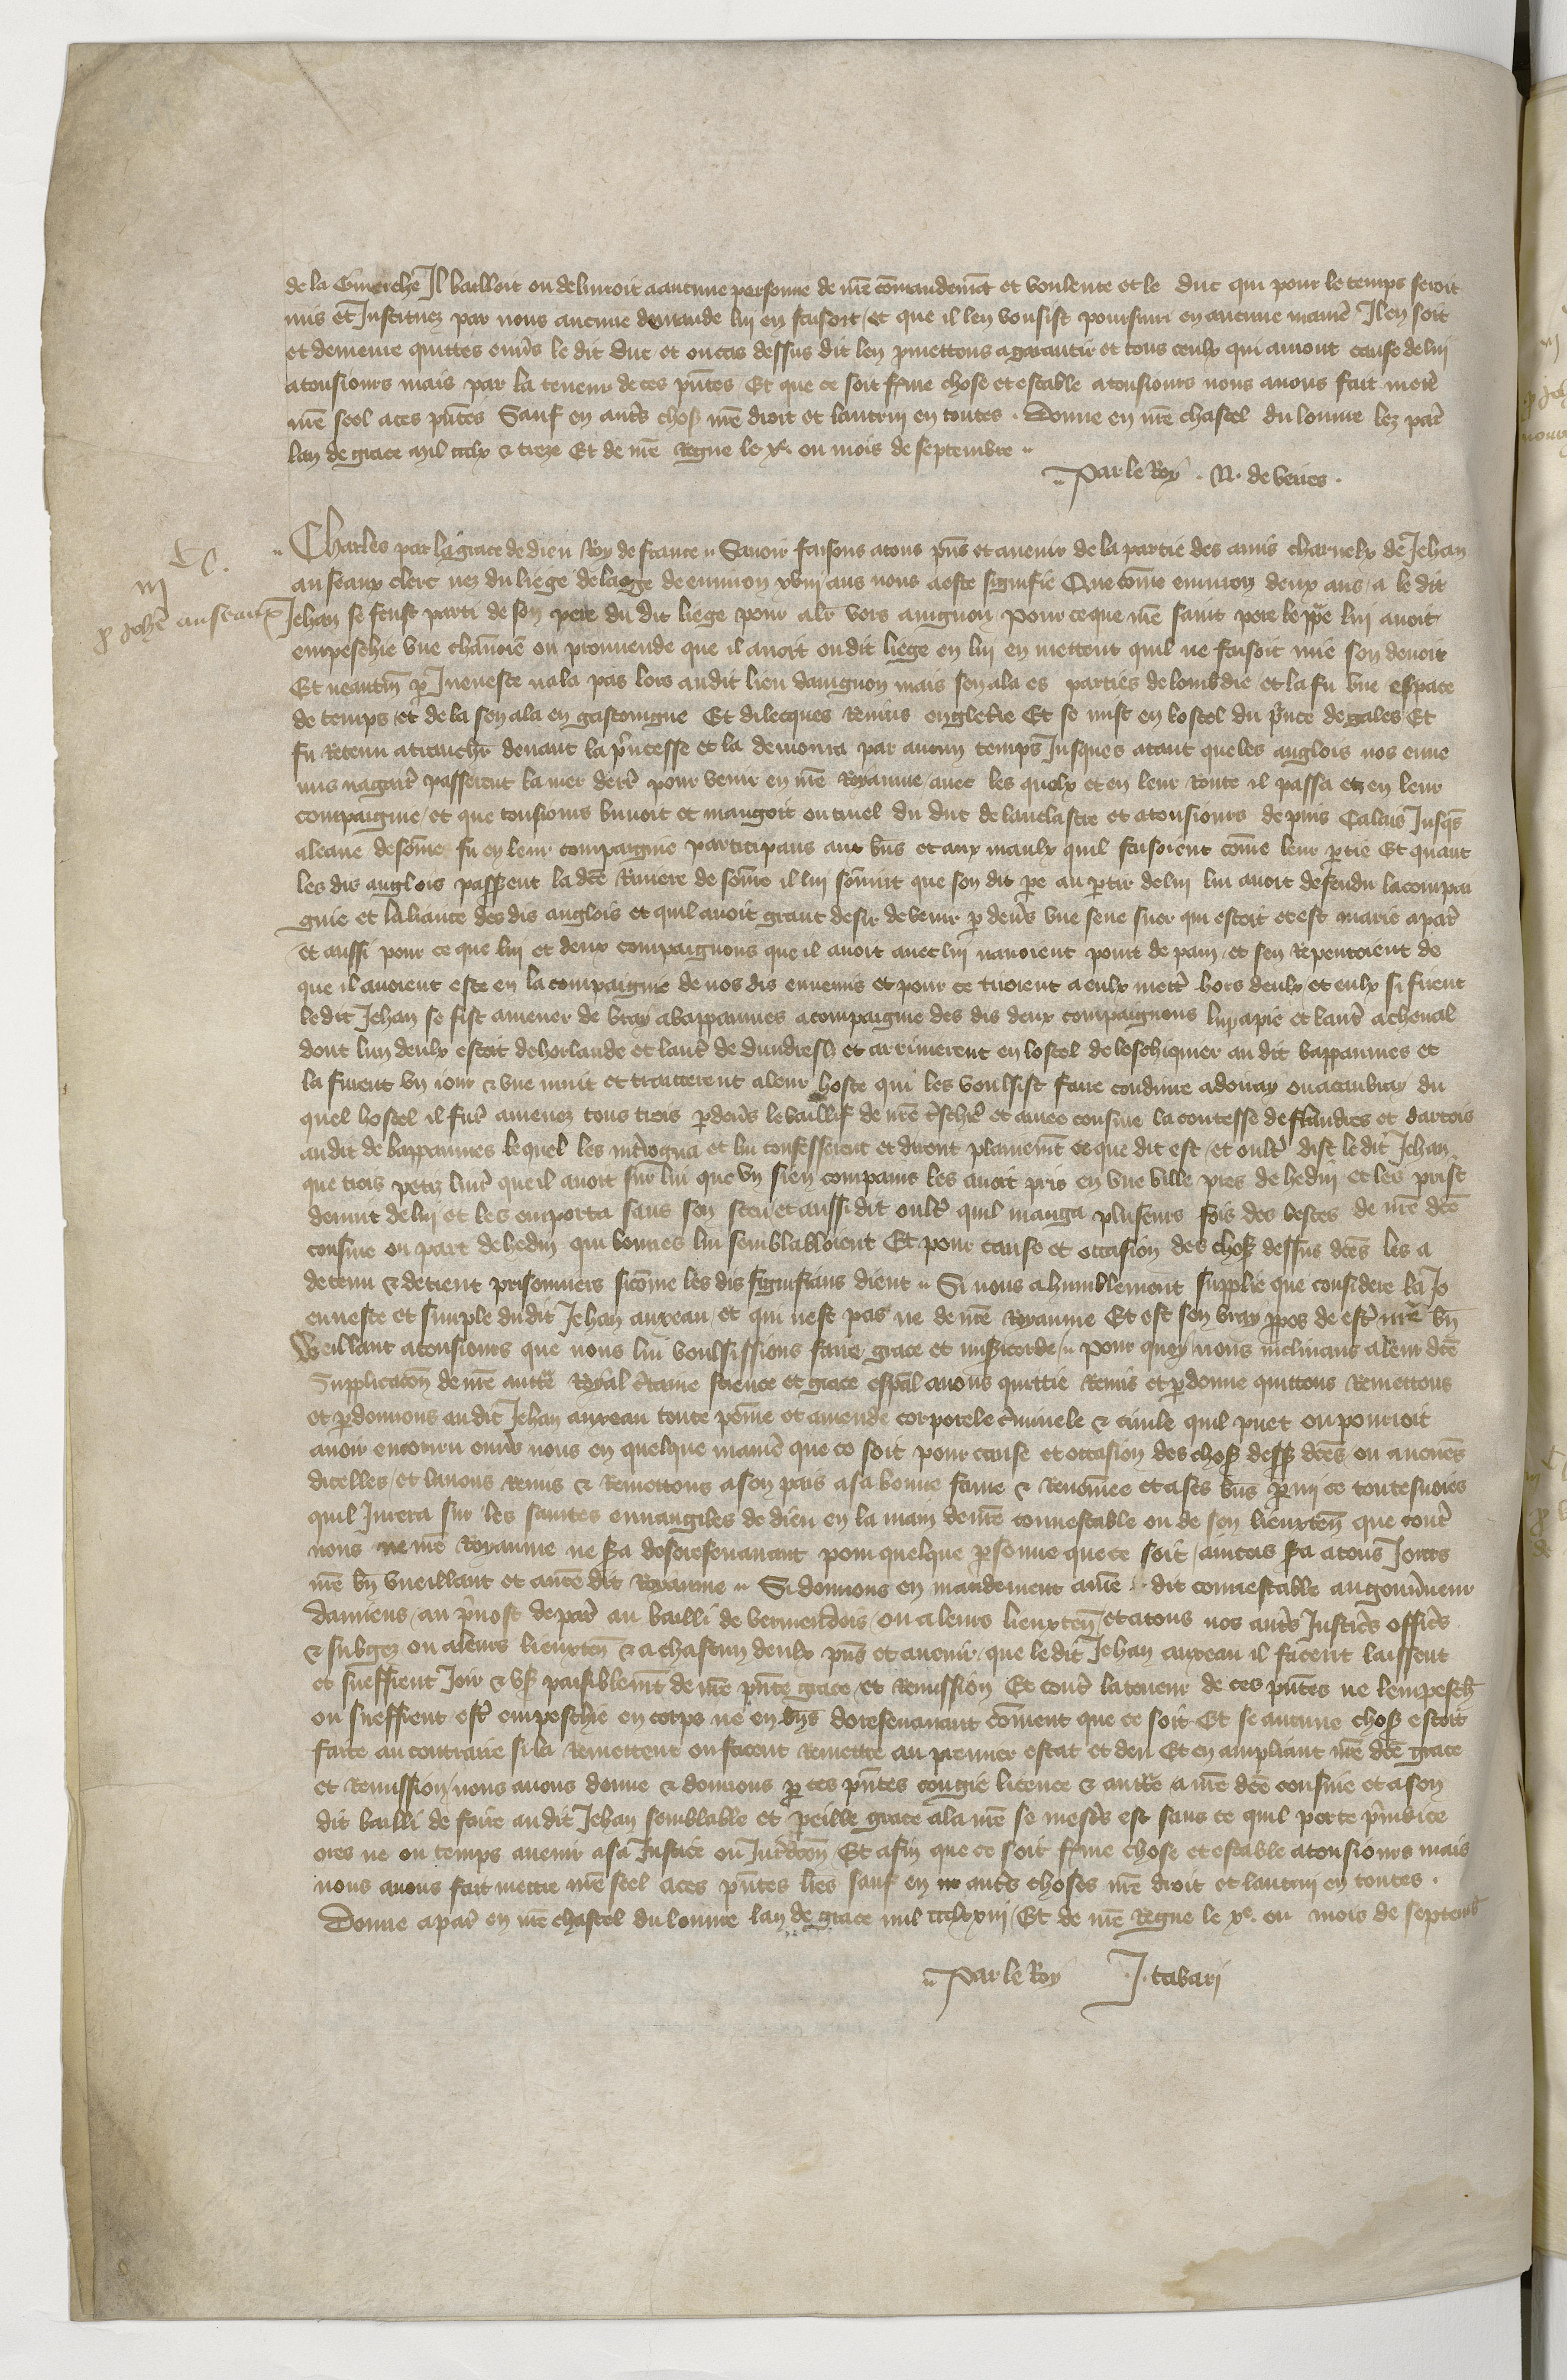 de la Guierche Il bailloit ou delivroit a aucune personne de nre comandemt et voulente et le duc qui pour le temps seroit
mis et Instituez par nous aucune demande lui en faisoit / et que il len vousist poursuir en aucune manie Il en soit
et demeure quittes envs le dit duc et ou cas dessus dit len pmettons a garantir et tous ceulx qui auront cause de lui
a tousiours mais par la teneur de ces pntes Et que ce soit ferme chose et estable a tousiours nous avons fait mettre
nre seel a ces pntes Sauf en autres choses nre droit et lautrui en toutes . Donne en nre chastel du louvre lez paris
lan de grace mil ccclx & treze Et de nre Regne le xe. ou mois de septembre
Par le Roy . N. de veires .
iii
p Jehan anseaux
Charles par la grace de dieu Roy de france Savoir faisons a tous pns et avenir de la partie des amis charnelx de Jehan
anseaux clerc nez du liege de laage de environ xviii ans nous a este signifie Que come environ deux ans a le dit
Jehan se feust parti de son pere du dit liege pour aler vers avignon pour ce que nre saint pere le ppe lui avoit
empeschie une chanoie ou prouvende que il avoit ou dit liege en lui en mettent quil ne faisoit mie son devoir
Et neantmoins p Jueneste nala pas lors audit lieu davignon mais sen ala es parties de lombardie et la fu une espace
de temps et de la sen ala en gascoingne Et dilecques Revins en engleterre Et se mist en lostel du prince de gales Et
fu Retenu a trencher devant la princesse et la demoura par aucun temps Jusques a tant que les anglois nos enne
mis nagaires passerent la mer derr pour venir en nre Royaume avec les quelx et en leur Route il passa et en leur
compaignie / et que tousiours buvoit et mangoit ou tinel du duc de lanclastre et a tousiours depuis Calais Jusqs
a leaue de some fu en leur compaignie participans aux biens et aux maulx quil faisoient come leur ptie Et quant
les dis anglois passerent la dce Riviere de some il lui sovint que son dit pe au ptir de lui lui avoit defendu la compai
gnie et laliance des dis anglois et quil avoit grant desir de venir p devs une sene suer qui estoit et est marie a paris
et aussi pour ce que lui et deux compaignons que il avoit avec lui navoient point de pain et sen Repentoient de
que il avoient este en la compaignie de nos dis ennemis et pour ce tirerent a eulx mettre hors deulx et eulx si furent
le dit Jehan se fist amener de bray a bappaumes acompaigne des dis deux compaignons lun a pie et lautre a cheval
dont lun deulx estoit de horlande et lautre de dundresh et arriverent en lostel de leschiquier au dit bappaumes et
la furent un iour & une nuit et traitterent a leur hoste qui les voulsist faire conduire a douay ou a cambray du
quel hostel il furent amenez tous trois p devs le baillif de nre tschire et amee cousine la contesse de flandres et dartois
au dit de bappaumes le quel les introgua et lui confesserent et dirent plainemt ce que dit est / et oultre dist le dit Jehan
que trois petiz livres que il avoit sur lui que un sien compains les avoit pris en une ville pres de hedin et les prist
devant de lui et les emporta sans son sceu et aussi dit oultre quil manga plusieurs fois des bestes de nre dce
cousine ou parc de hedin qui bonnes lui sembloient Et pour cause et occasion des choses dessus dces les a
detenu & detient prisonniers sicome les dis signifians dient Si nous a humblement supplie que considere la Jo
enneste et simple dudit Jehan anxeau et qui nest pas ne de nre Royaume Et est son vray ppos de estre nre bn
Weillant a tousiours que nous lui voulsissions faire grace et misericorde pour quoy nous inclinant a leur dce
Supplicacon de nre autte Royal ctaine science et grace espal avons quittie remis et pdonne quittons Remettons
et pdonnons au dit Jehan anxeau toute poine et amende corporele criminele & civile quil puet ou pourroit
avoir encouru envs nous en quelque manie que ce soit pour cause et occasion des choses dessus dces ou aucunes
dicelles / et lavons Remis & Remettons a son pais a sa bonne fame & Renomee et a ses bns pmi ce toutesvoies
quil Jurera sur les saintes euvangiles de dieu en la main de nre connestable ou de son lieuxten que contre
nous ne nre Royaume ne sera doresenavant pour quelque psonne que ce soit / aincois sera a tous Jours
nre bn vueillant et a nre dit Royaume Si donnons en mandement a nre dit connestable au gouvneur
damiens / au pvost de paris au bailli de vermendois / ou a leurs lieuxten / et a tous nos autres Justicrs officrs
& subgez ou a leurs lieuxten & a chascun deulx pns et avenir / que le dit Jehan anxeau il facent laissent
et sueffrent Joir & user paisiblemt de nre pnte grace / et Remission Et contre la teneur de ces pntes ne lempesch
ou sueffrent estre empeschie en corps ne en biens doresenavant coment que ce soit Et se aucune chose estoit
faite au contraire si la Remettent ou facent Remettre au premier estat et deu Et en ampliant nre dce grace
et Remission nous avons donne & donnons p ces pntes congie licence & autte a nre dce cousine et a son
dit bailli de faire au dit Jehan semblable et peille grace a la nre se mestrs est sans ce quil porte pjudice
ores ne ou temps avenir a sa Justice ou Juridcon Et afin que ce soit ferme chose et estable a tousiours mais
nous avons fait mettre nre seel a ces pntes lres sauf en autres choses nre droit et lautrui en toutes .
Donne a paris en nre chastel du louvre lan de grace mil ccclxxiii / Et de nre Regne le xe. ou mois de septemb
Par le Roy J. tabari